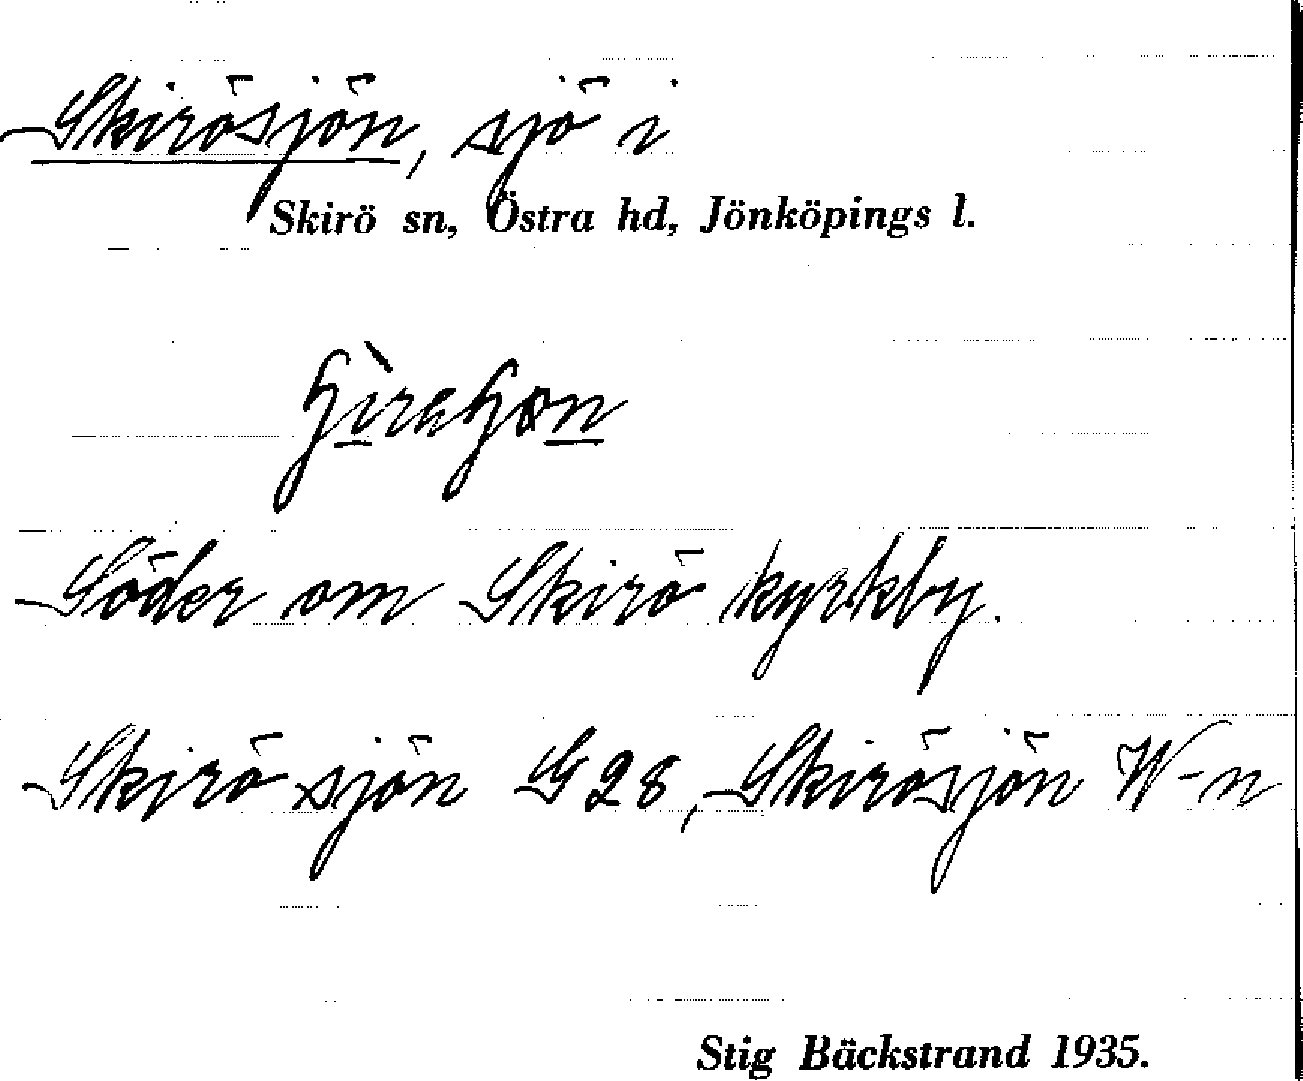 Skirösjön, sjö i
Skirö sn, Östra hd, Jönköpings l.
Söder om Skirö kyrkby.
Skirö sjön G 28, Skirösjön W-n
Stig Bäckstrand 1935.